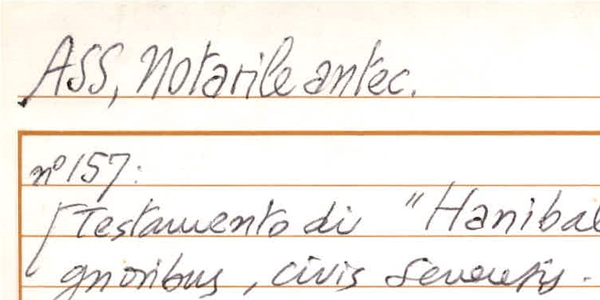 ASS, Notarile antec.
n° 157:
[Testamento di "Hanibal
gnoribus, civis Senensis.